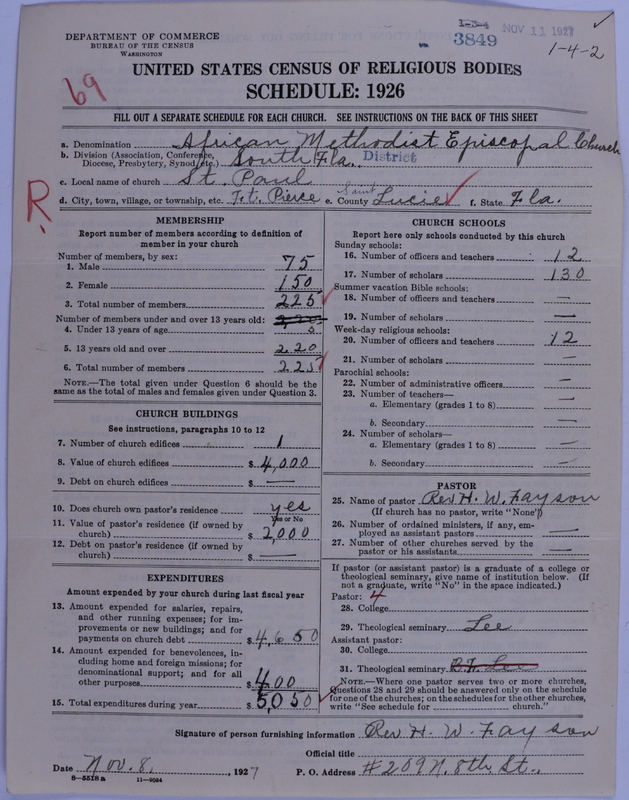 DEPARTMENT OF COMMERCE
BUREAU OF THE CENSUS
WASHINGTON
1-3-4
3849
NOV 11 1927
1-4-2
69
UNITED STATES CENSUS OF RELIGIOUS BODIES
SCHEDULE: 1926
FILL OUT A SEPARATE SCHEDULE FOR EACH CHURCH. SEE INSTRUCTIONS ON THE BACK OF THIS SHEET
a. Denomination African Methodist Episcopal Church
b. Division (Association, Conference, Diocese, Presbytery, Synod, etc.) South Fla. District
c. Local name of church St. Paul
R.
d. City, town, village, or township, etc. Ft. Pierce e. County Saint Lucie f. State Fla.
MEMBERSHIP
Report number of members according to definition of
member in your church
Number of members, by sex:
1. Male 75
2. Female 150
3. Total number of members 225
Number of members under and over 13 years old:
4. Under 13 years of age 5
5. 13 years old and over 220
6. Total number of members 225
NOTE.—The total given under Question 6 should be the
same as the total of males and females given under Question 3.
CHURCH BUILDINGS
See instructions, paragraphs 10 to 12
7. Number of church edifices 1
8. Value of church edifices $ 4,000
9. Debt on church edifices $ —
10. Does church own pastor's residence yes
Yes or No
11. Value of pastor's residence (if owned by
church) $ 2,000
12. Debt on pastor's residence (if owned by
church) $ —
EXPENDITURES
Amount expended by your church during last fiscal year
13. Amount expended for salaries, repairs,
and other running expenses; for im-
provements or new buildings; and for
payments on church debt $ 4,650
14. Amount expended for benevolences, in-
cluding home and foreign missions; for
denominational support; and for all
other purposes $ 400
15. Total expenditures during year $ 5,050
CHURCH SCHOOLS
Report here only schools conducted by this church
Sunday schools:
16. Number of officers and teachers 12
17. Number of scholars 130
Summer vacation Bible schools:
18. Number of officers and teachers —
19. Number of scholars —
Week-day religious schools:
20. Number of officers and teachers 12
21. Number of scholars —
Parochial schools:
22. Number of administrative officers —
23. Number of teachers—
a. Elementary (grades 1 to 8) —
b. Secondary —
24. Number of scholars—
a. Elementary (grades 1 to 8) —
b. Secondary —
PASTOR
25. Name of pastor Rev H. W. Fayson
(If church has no pastor, write "None")
26. Number of ordained ministers, if any, em-
ployed as assistant pastors —
27. Number of other churches served by the
pastor or his assistants —
If pastor (or assistant pastor) is a graduate of a college or
theological seminary, give name of institution below. (If
not a graduate, write "No" in the space indicated.)
Pastor: 4
28. College
29. Theological seminary Lee
Assistant pastor:
30. College
31. Theological seminary
NOTE.—Where one pastor serves two or more churches,
Questions 28 and 29 should be answered only on the schedule
for one of the churches; on the schedules for the other churches,
write "See schedule for ............ church."
Signature of person furnishing information Rev H. W. Fayson
Official title
Date Nov. 8, 1927 P. O. Address #209 N. 8th St.,
8—5518a 11—9034